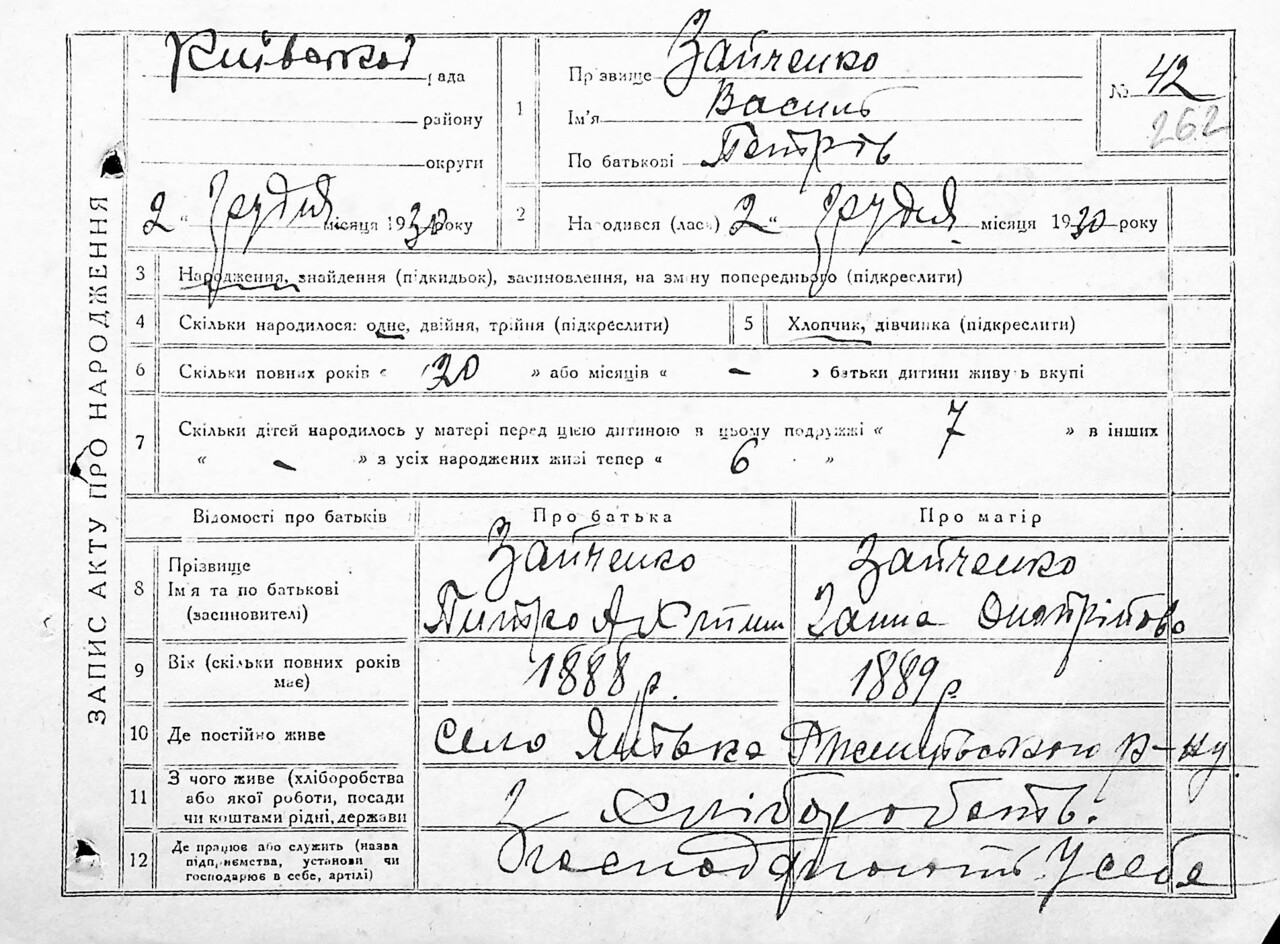 ЗАПИС АКТУ ПРО НАРОДЖЕННЯ
рада
району
округи
2 " грудня місяця 1930 року
1 Прізвище Зайченко
Ім'я Василь
По батькові Петрів
№ 42
262
2 Народився (лась) 2 " грудня місяця 1930 року
3 Народження, знайдення (підкидьок), засиновлення, на зміну попереднього (підкреслити)
4 Скільки народилося: одне, двійня, трійня (підкреслити)
5 Хлопчик, дівчинка (підкреслити)
6 Скільки повних років « 20 » або місяців « - » батьки дитини живуть вкупі
7 Скільки дітей народилось у матері перед цією дитиною в цьому подружжі « 7 » в інших
« - » з усіх народжених живі тепер « 6 »
Відомості про батьків Про батька Про матір
8 Прізвище
Ім'я та по батькові
(засиновителі)
Зайченко
Зайченко
Ганна
9 Вік (скільки повних років
має)
1888 р.
1889 р.
10 Де постійно живе
село
р-ну
11 З чого живе (хліборобства
або якої роботи, посади
чи коштами рідні, держави
З хліборобств.
12 Де працює або служить (назва
підприємства, установи чи
господарює в себе, артілі)
у себе